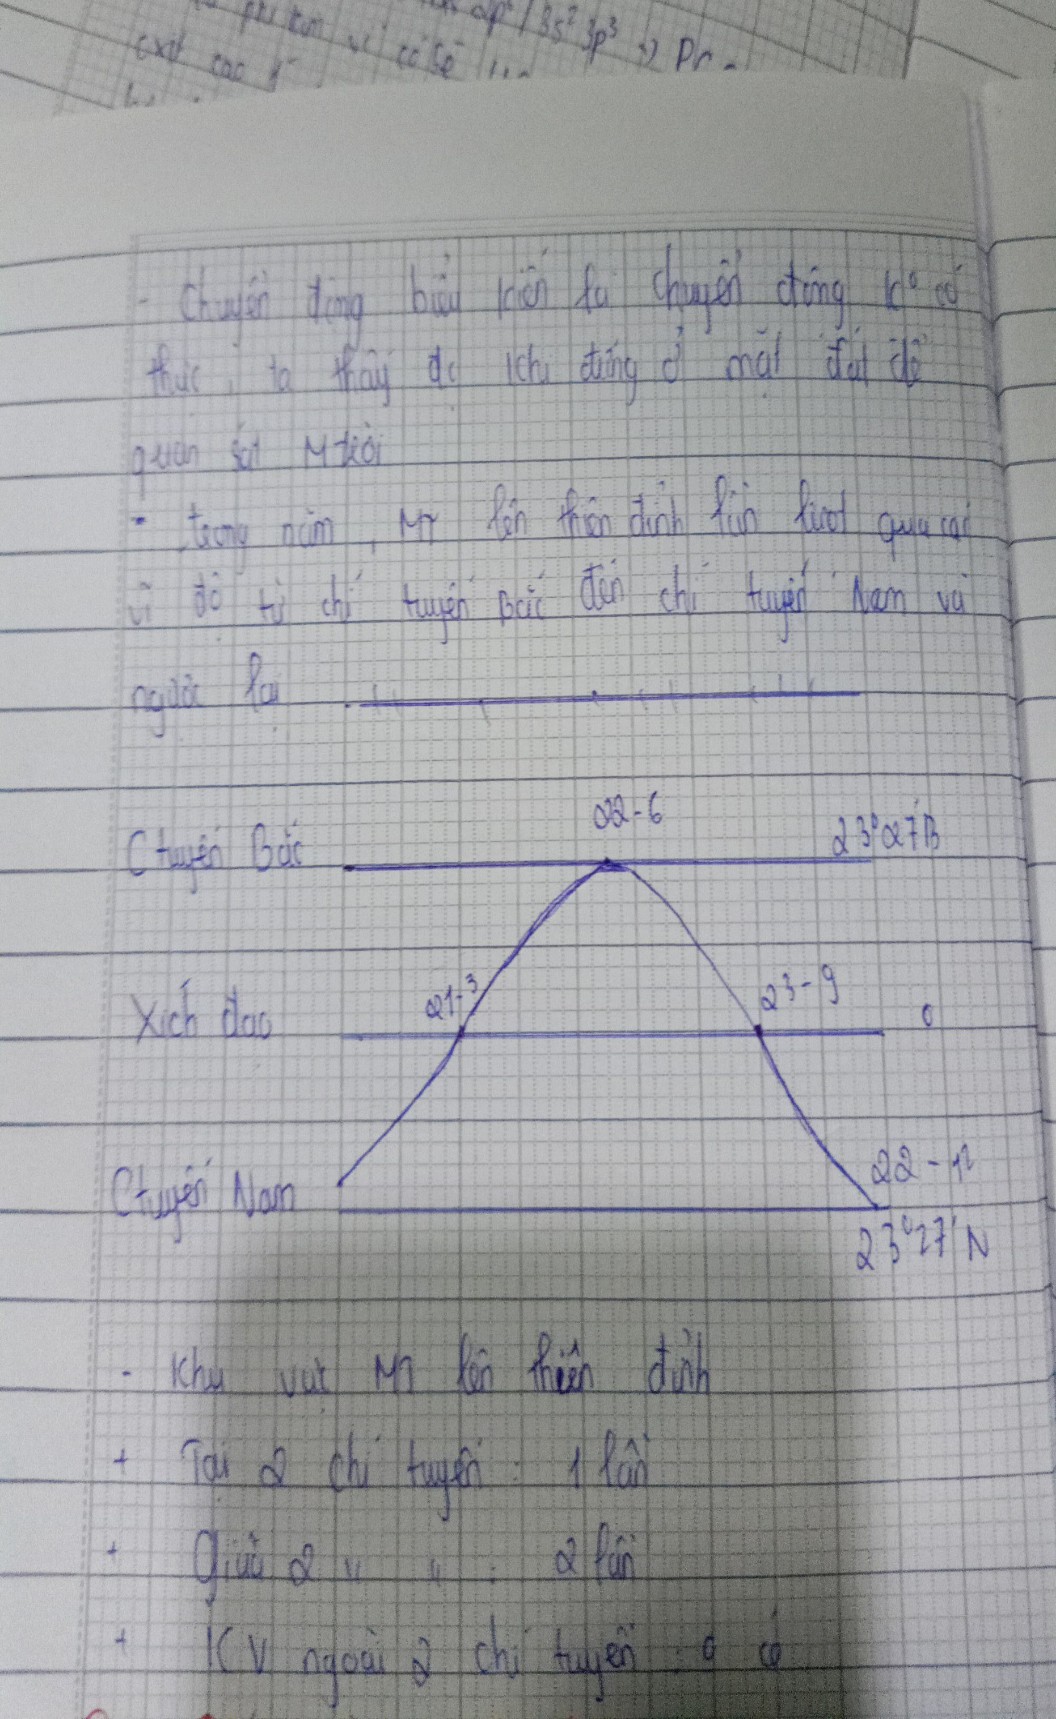 3s² 3p³
cao
- Chuyển động biểu kiến là chuyển động kº có
thực, ta thấy đc khi đứng ở mặt đất để
quan sát M trời
- trong năm, MT lên thiên đỉnh lần lượt qua các
vĩ độ từ chí tuyến Bắc đến chí tuyến Nam và
ngược lại
22-6
Ctuyến Bắc 23º27'B
21-3 23-9
Xích đạo 0
22-12
Ctuyến Nam
23º27'N
- Khu vực MT lên thiên đỉnh
+ Tại 2 chí tuyến : 1 lần
+ Giữa 2 " " : 2 lần
+ KV ngoài 2 chí tuyến : có